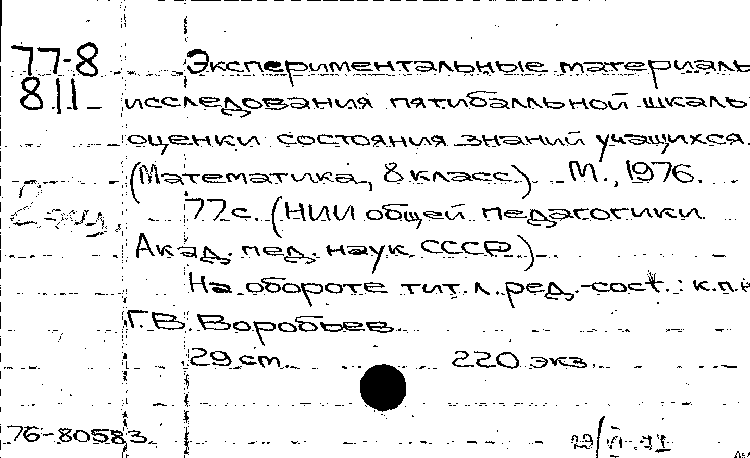 77-8 Экспериментальные материалы
811 исследования пятибалльной шкалы
оценки состояния знаний учащихся.
(Математика, 8 класс.) М., 1976.
2 экз. 77 с. (НИИ общей педагогики
Акад. пед. наук СССР)
На обороте тит. л. ред.-сост.: к.п.н
Г.В. Воробьев
29 cm 220 экз.
76-80583